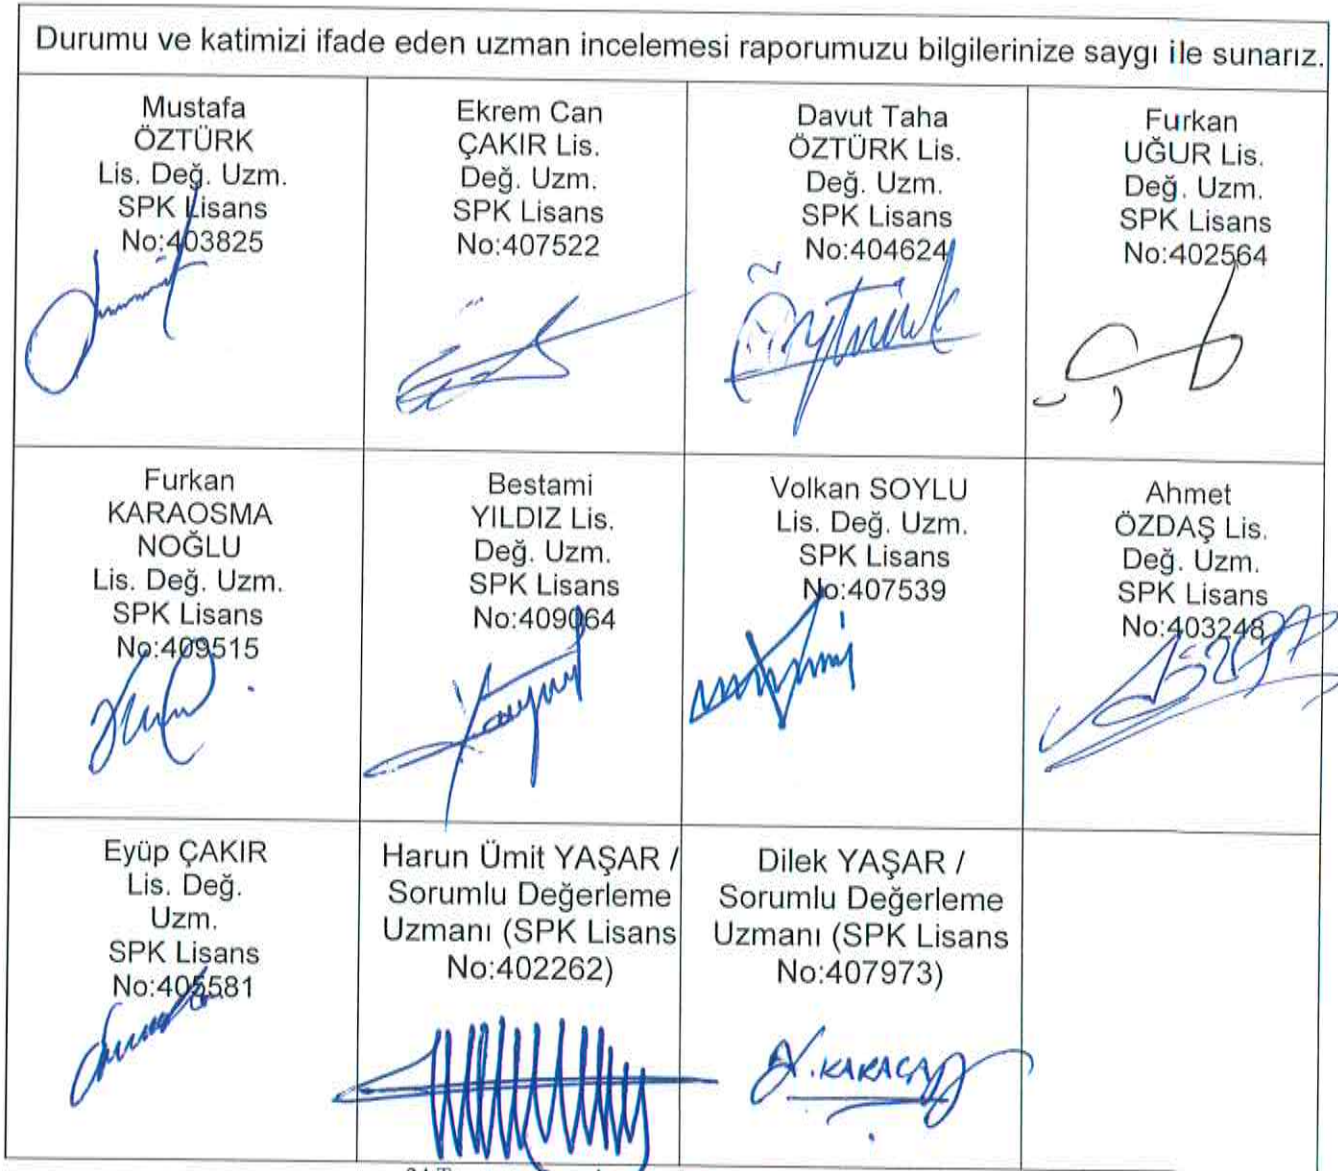 Durumu ve katimizi ifade eden uzman incelemesi raporumuzu bilgilerinize saygı ile sunarız.
Mustafa
ÖZTÜRK
Lis. Değ. Uzm.
SPK Lisans
No:403825
Ekrem Can
ÇAKIR Lis.
Değ. Uzm.
SPK Lisans
No:407522
Davut Taha
ÖZTÜRK Lis.
Değ. Uzm.
SPK Lisans
No:404624
Öztürk
Furkan
UĞUR Lis.
Değ. Uzm.
SPK Lisans
No:402564
Furkan
KARAOSMA
NOĞLU
Lis. Değ. Uzm.
SPK Lisans
No:409515
Bestami
YILDIZ Lis.
Değ. Uzm.
SPK Lisans
No:409064
Volkan SOYLU
Lis. Değ. Uzm.
SPK Lisans
No:407539
Ahmet
ÖZDAŞ Lis.
Değ. Uzm.
SPK Lisans
No:403248
Eyüp ÇAKIR
Lis. Değ.
Uzm.
SPK Lisans
No:405581
Harun Ümit YAŞAR /
Sorumlu Değerleme
Uzmanı (SPK Lisans
No:402262)
Dilek YAŞAR /
Sorumlu Değerleme
Uzmanı (SPK Lisans
No:407973)